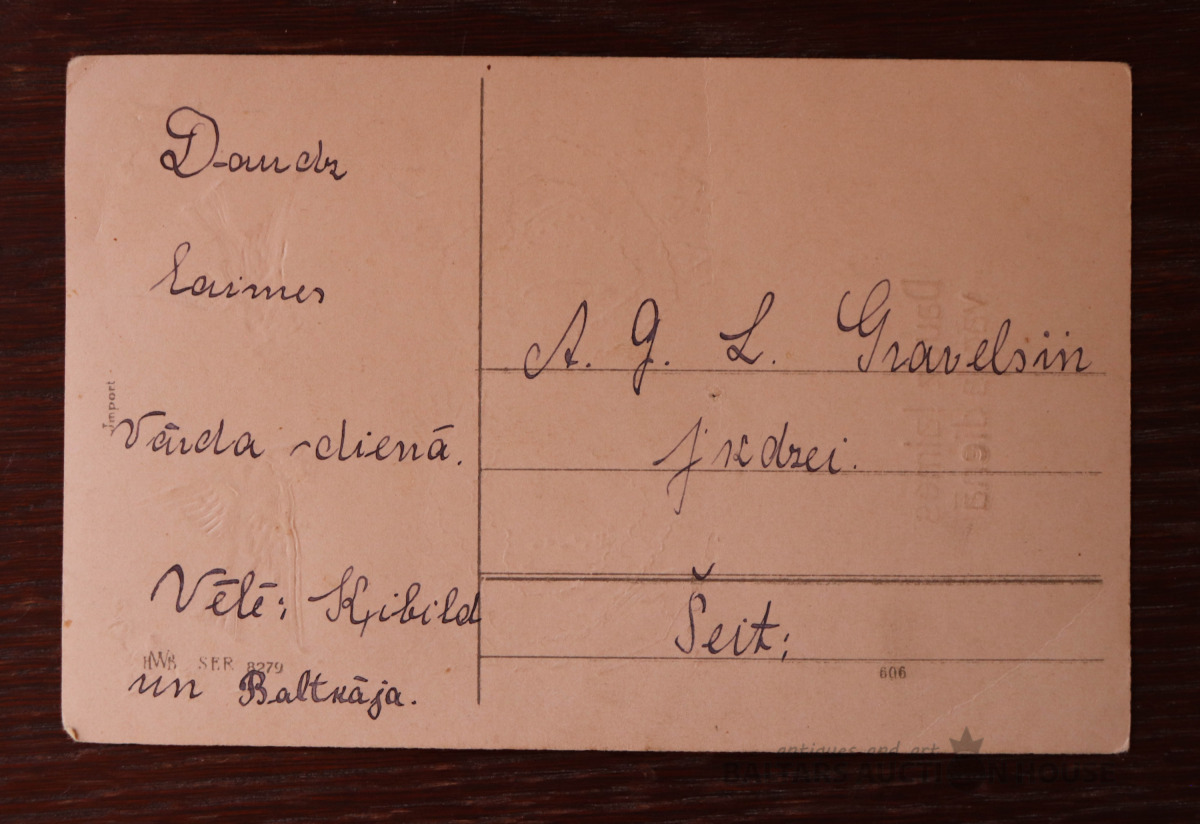 Daudz
laimes
Vārda dienā.
Vēlē: Ķibild
un Baltkāja.
Import
HWB SER 8279
A. G. L. Gravelsiņ
jkdzei.
Šeit;
606
antiques and art
BALTARS AUCTION HOUSE